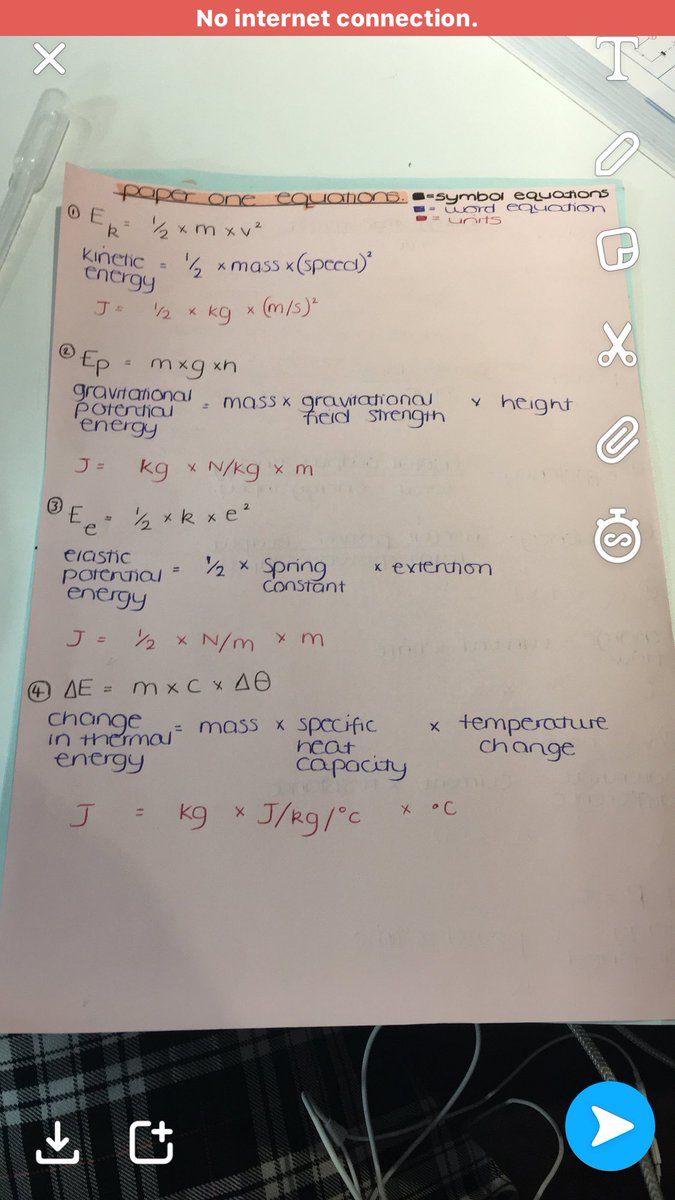 No internet connection.
T
paper one equations. ■=symbol equations
■= word equation
■= units
① Ek = ½ × m × v²
kinetic energy = ½ × mass × (speed)²
J = ½ × kg × (m/s)²
② Ep = m×g×h
gravitational potential energy = mass × gravitational field strength × height
J = kg × N/kg × m
③ Ee = ½ × k × e²
elastic potential energy = ½ × spring constant × extention
J = ½ × N/m × m
④ ΔE = m × c × Δθ
change in thermal energy = mass × specific heat capacity × temperature change
J = kg × J/kg/°c × °C